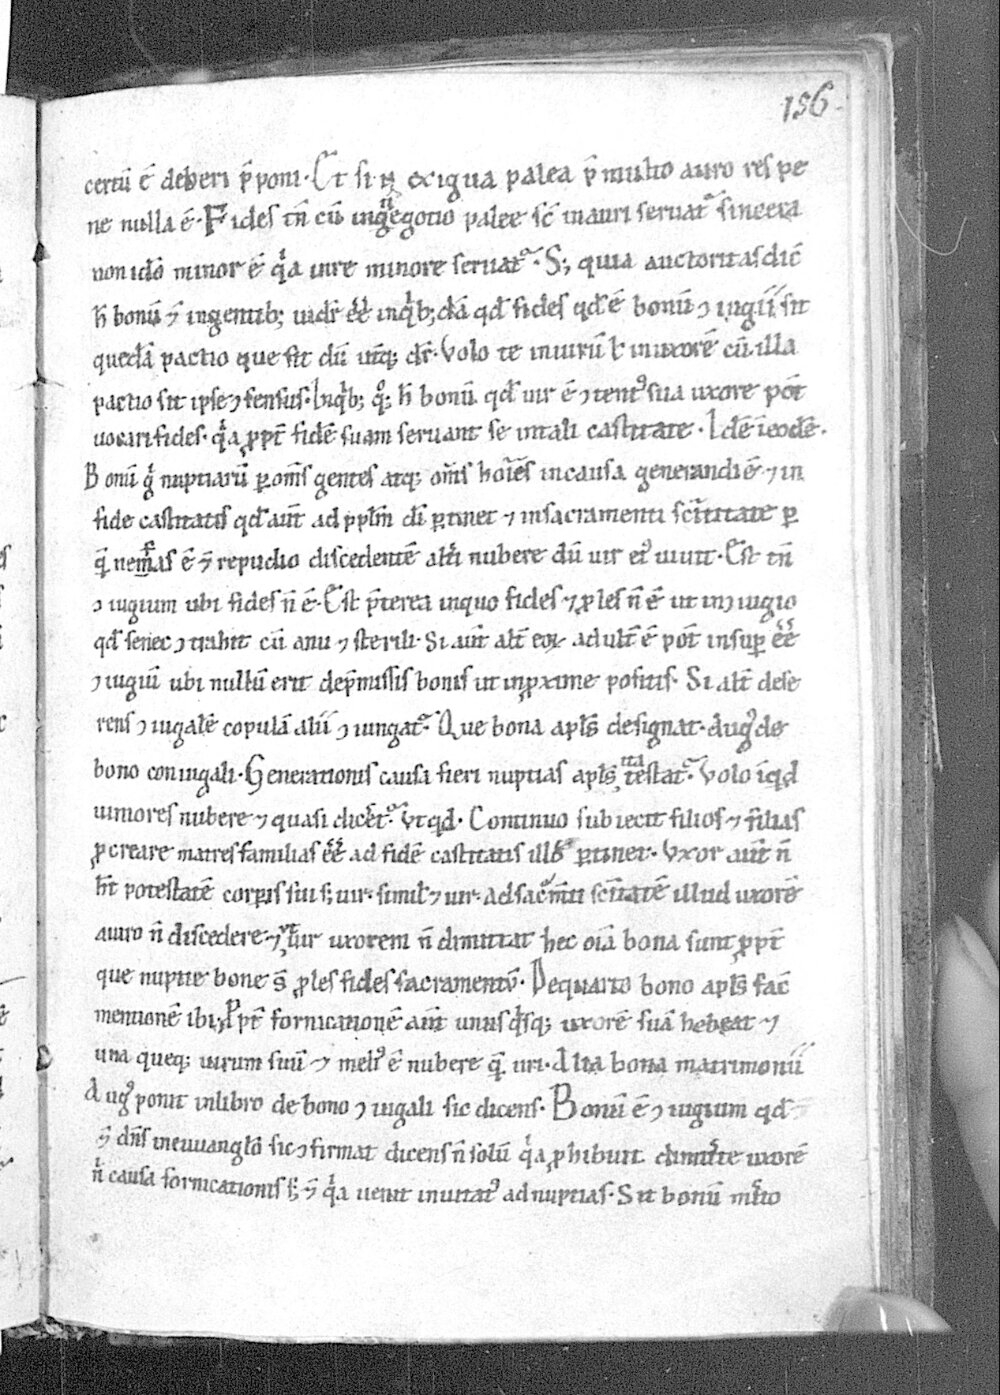 156
certū ē deberi p̄poni. Et si ñ exigua palea p̄ multo auro res pe
ne nulla ē. Fides tn̄ cū in negotio palee sic̄ in auri seruat᷑ sincera
non ido̅ minor ē q̇a in re minore seruat᷑. S; quia auctoritas dic̄
h̄ bonū ⁊ in gentib; uidr̄ ēē inq̇b;dā qd̄ fides qd̄ ē bonū ɔiugii sit
quedā pactio que fit dū utq; dr̄. Volo te in uirū ł in uxorē cū illa
pactio sit ipse ɔsensus. Inq̇b; q̊; h̄ bonū qd̄ uir ē ɔtent᷒ sua uxore pōt
uocari fides. q̇a ꝓpt̄ fidē suam seruant se in tali castitate. Idē ī eodē.
Bonū g̊ nuptiarū ꝑ om̄s gentes atq; om̄s hoīes in causa generandi ē ⁊ in
fide castitatis qd̄ aūt ad pp̄lm̄ dī ꝑtinet ⁊ in sacramenti sc̄titate ꝑ
q̄ nefas ē ⁊ repudio discedentē alt̄i nubere dū uir ei᷒ uiuit. Est tn̄
ɔiugium ubi fides n̄ ē. Est p̄terea in quo fides ⁊ ꝓles n̄ ē ut in ɔiugio
qd̄ senec ɔtrahit cū anu ⁊ sterili. Si aūt alt̄ eoꝝ adult̄ ē pōt insuꝑ ēē
ɔiugiū ubi nullū erit de p̄missis bonis ut in ꝓxime positis. Si alt̄ dese
rens ɔiugalē copulā alii ɔiungat᷑. Que bona apl̄s designat. Aug᷒ de
bono coniugali. Generationis causa fieri nuptias apl̄s ita testat᷑. Volo inq̇d
uiniores nubere ⁊ quasi dicēt᷑. Vt qd̄. Continuo subiecit filios ⁊ filias
ꝓcreare matres familias ēē ad fidē castitatis illđ ꝑtinet. Vxor aūt n̄
h̄t potestatē corꝑis sui s; uir. simil̄ ⁊ uir. Ad sac̄m̄ti sc̄itatē illud uxorē
a uiro n̄ discedere ⁊ uir uxorem n̄ dimittat hec oīa bona sunt ꝓpt̄
que nuptie bone s̄ ꝓles fides sacramentū. De quarto bono apl̄s fac̄
mentionē ibi; Ꝓpt̄ fornicationē aūt unusq̇sq; uxorē suā habeat ⁊
una queq; uirum suū ⁊ meli᷒ ē nubere q̄ uri. Alia bona matrimonii
Aug᷒ ponit in libro de bono ɔiugali sic dicens. Bonū ē ɔiugium qd̄
⁊ dn̄s in euuanglo̅ sic ɔfirmat dicens n̄ solū q̇a ꝓhibuit dimitte uxorē
n̊ causa fornicationis s; ⁊ q̇a uenit inuitat᷒ ad nuptias. Sit bonū m̄ito